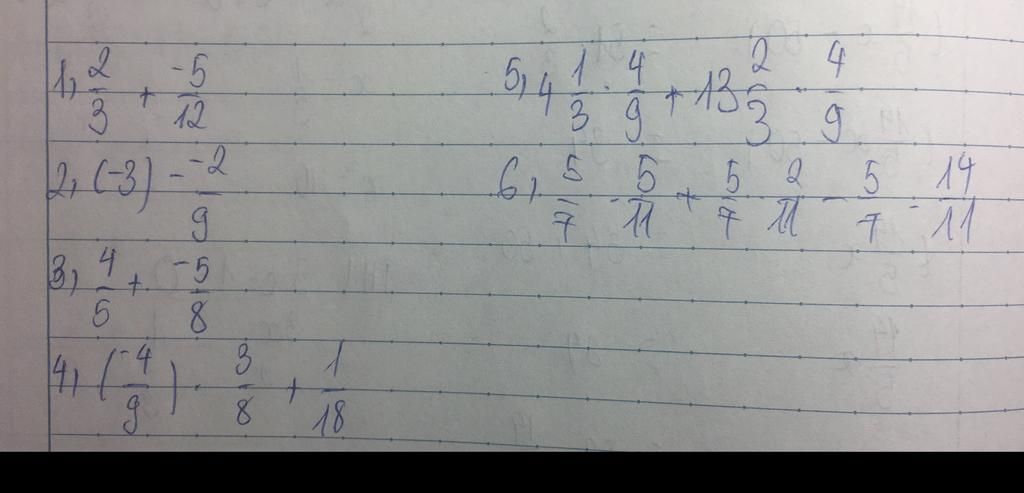 1, 2/3 + -5/12
2, (-3) - -2/9
3, 4/5 + -5/8
4, (-4/9) · 3/8 + 1/18
5, 4 1/3 · 4/9 + 13 2/3 · 4/9
6, 5/7 · 5/11 + 5/7 · 2/11 - 5/7 · 14/11